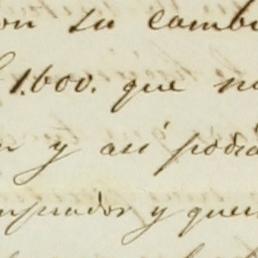 on su cambi
1.600. que no
n y así podía
mprador y quer